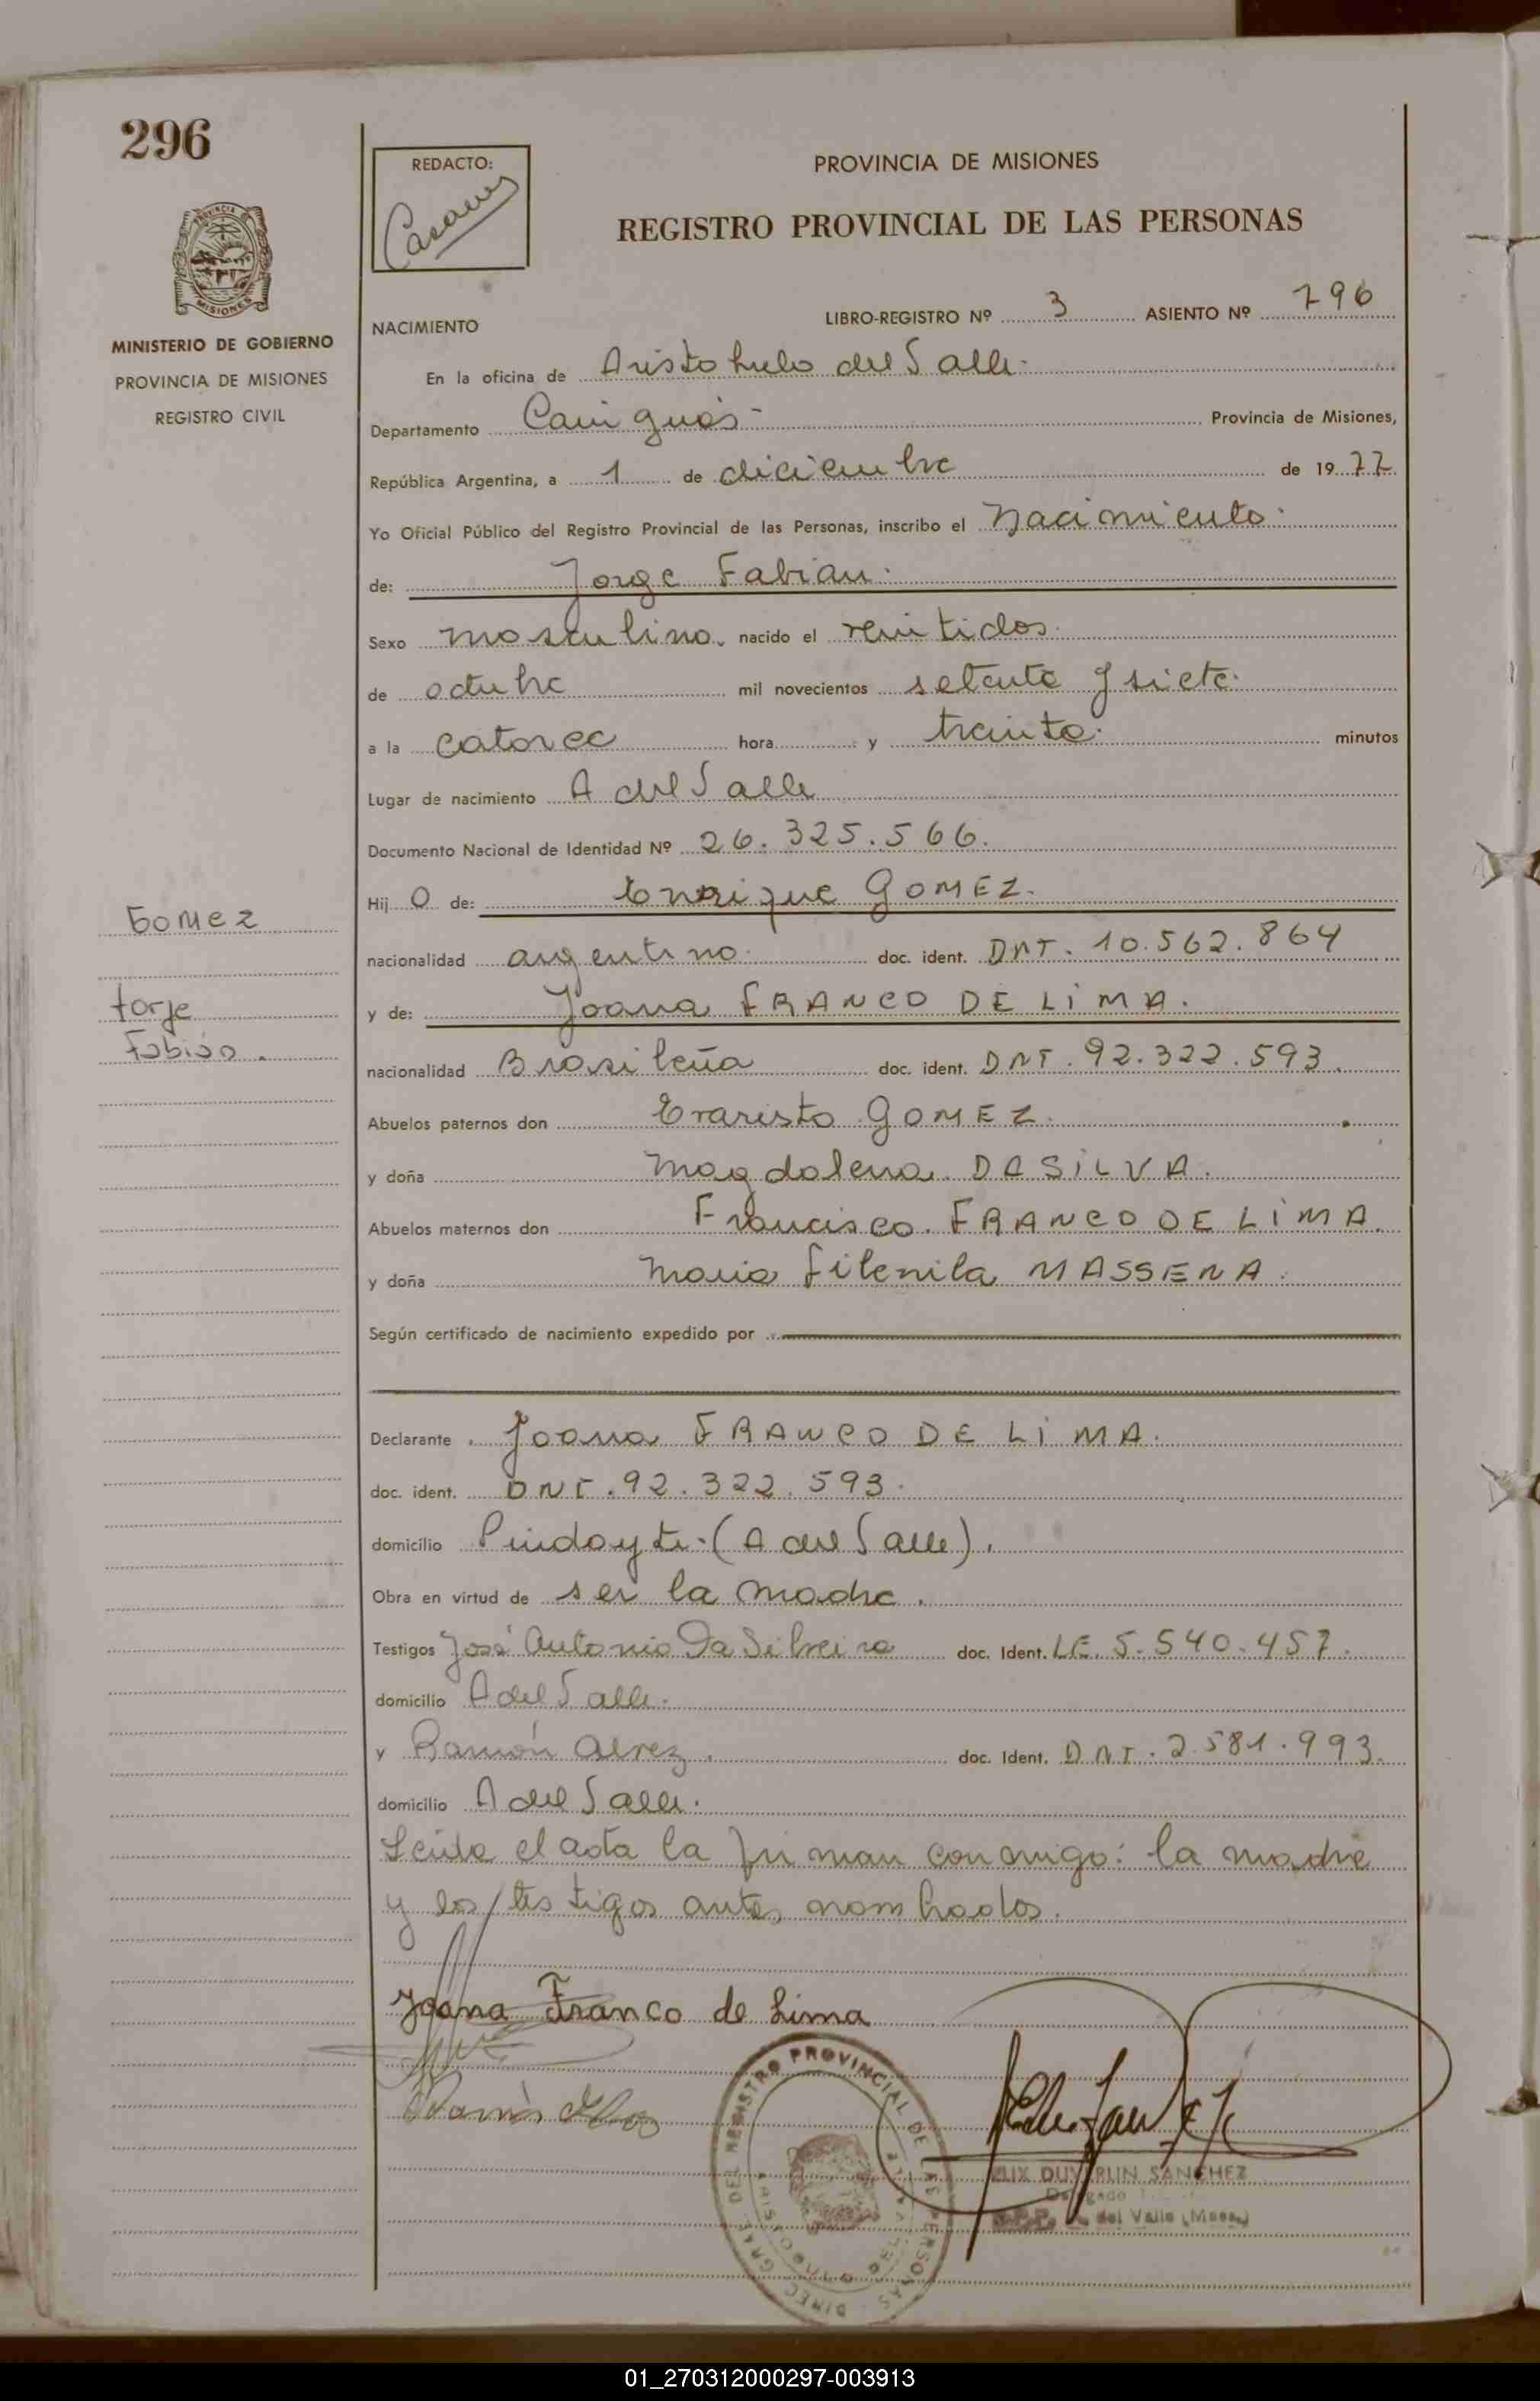 296
REDACTO:
PROVINCIA DE MISIONES
REGISTRO PROVINCIAL DE LAS PERSONAS
PROVINCIA DE
MISIONES
MINISTERIO DE GOBIERNO
PROVINCIA DE MISIONES
REGISTRO CIVIL
NACIMIENTO LIBRO-REGISTRO Nº 3 ASIENTO Nº 796
En la oficina de Aristobulo del Valle
Departamento Cainguás Provincia de Misiones,
República Argentina, a 1 de diciembre de 1977
Yo Oficial Público del Registro Provincial de las Personas, inscribo el Nacimiento
de: Jorge Fabian
Sexo masculino nacido el veintidos
de octubre mil novecientos setenta y siete
a la catorce hora y treinta minutos
Lugar de nacimiento A del Valle
Documento Nacional de Identidad Nº 26.325.566.
Hij O de: Enrique GOMEZ.
nacionalidad argentino doc. ident. DNI. 10.562.864
y de: Joana FRANCO DE LIMA.
nacionalidad Brasileña doc. ident. DNI. 92.322.593.
Abuelos paternos don Evaristo GOMEZ.
y doña Magdalena DASILVA.
Abuelos maternos don Francisco FRANCO DE LIMA.
y doña Maria Filenila MASSENA.
Según certificado de nacimiento expedido por
Gomez
Jorje
Fabián.
Declarante Joana FRANCO DE LIMA.
doc. ident. DNI. 92.322.593.
domicilio Pindayti (A del Valle).
Obra en virtud de ser la madre.
Testigos José Antonio Da Silveira doc. Ident. LE. 5.540.457.
domicilio A del Valle.
y Ramón Alvez. doc. Ident. DNI. 2.581.993.
domicilio A del Valle.
Leida el acta la firman conmigo: la madre
y los testigos antes nombrados.
Joana Franco de Lima
Ramón
DIREC. GRAL. DEL REGISTRO PROVINCIAL DE LAS PERSONAS
ARISTOBULO DEL VALLE
DUVERLIN SANCHEZ
Delegado
del Valle (Mnes)
01_270312000297-003913